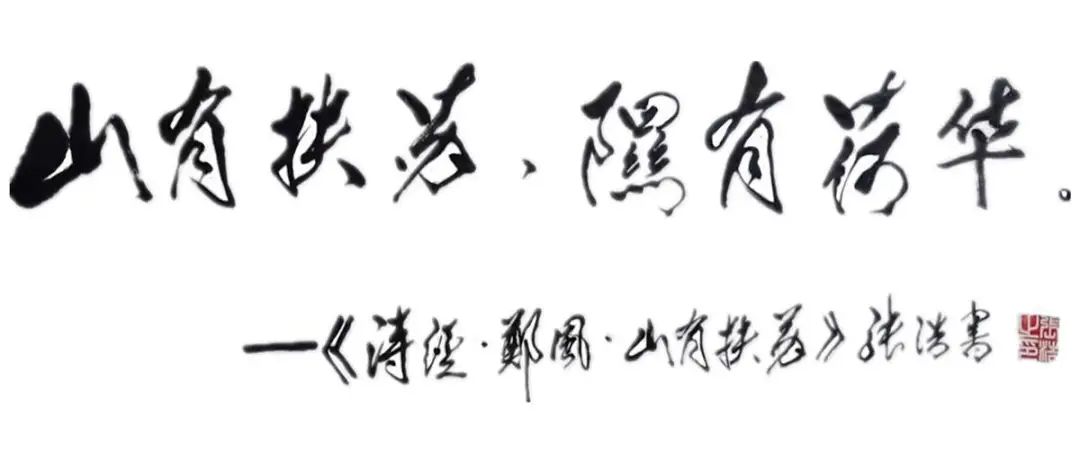 山有扶苏，隰有荷华。
—《诗经·鄭風·山有扶苏》张浩書